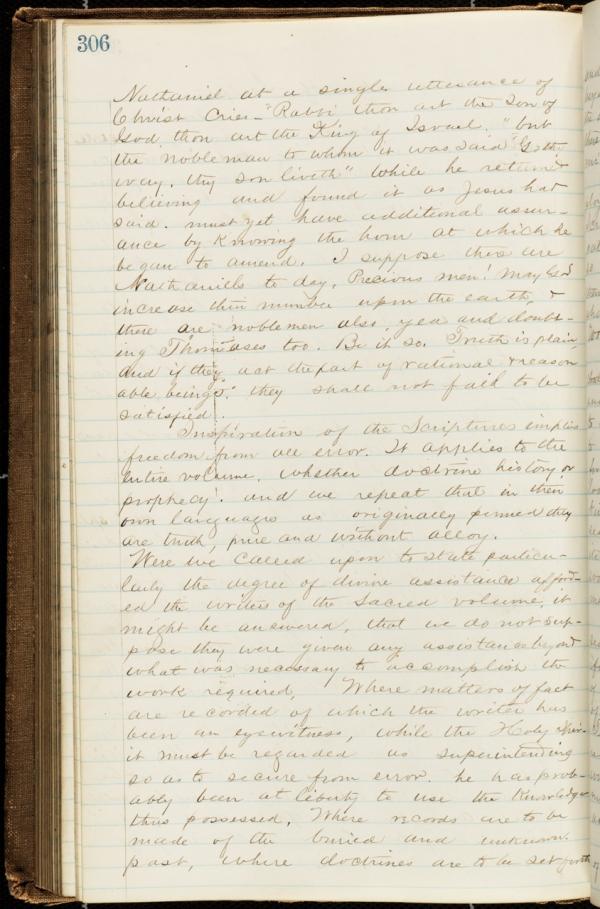 306
Nathaniel at a single utterance of
Christ Cries – "Rabbi thou art the Son of
God, thou art the King of Israel." but
the nobleman to whom it was said "Go thy
way, thy son liveth" while he returned
believing and found it as Jesus had
said. must yet have additional assur-
ance by knowing the hour at which he
began to amend. I suppose there are
Nathaniels to day, Precious men! May God
increase their number upon the earth, &
there are noblemen also, yea and doubt-
ing Thomases too. Be it so. Truth is plain
and if they act the part of rational & reason
able beings, they shall not fail to be
satisfied.
Inspiration of the Scriptures implies
freedom from all error. It applies to the
entire volume, whether doctrine history or
prophecy. and we repeat that in their
own languages as originally penned they
are truth, pure and without alloy.
Were we called upon to state particu-
larly the degree of divine assistance afford-
ed the writers of the Sacred volume, it
might be answered, that we do not sup-
pose they were given any assistance beyond
what was necessary to accomplish the
work required, Where matters of fact
are recorded of which the writer has
been an eyewitness, while the Holy Spir-
it must be regarded as superintending
so as to secure from error. he has prob-
ably been at liberty to use the knowledge
thus possessed. Where records are to be
made of the buried and unknown
past, where doctrines are to be set forth